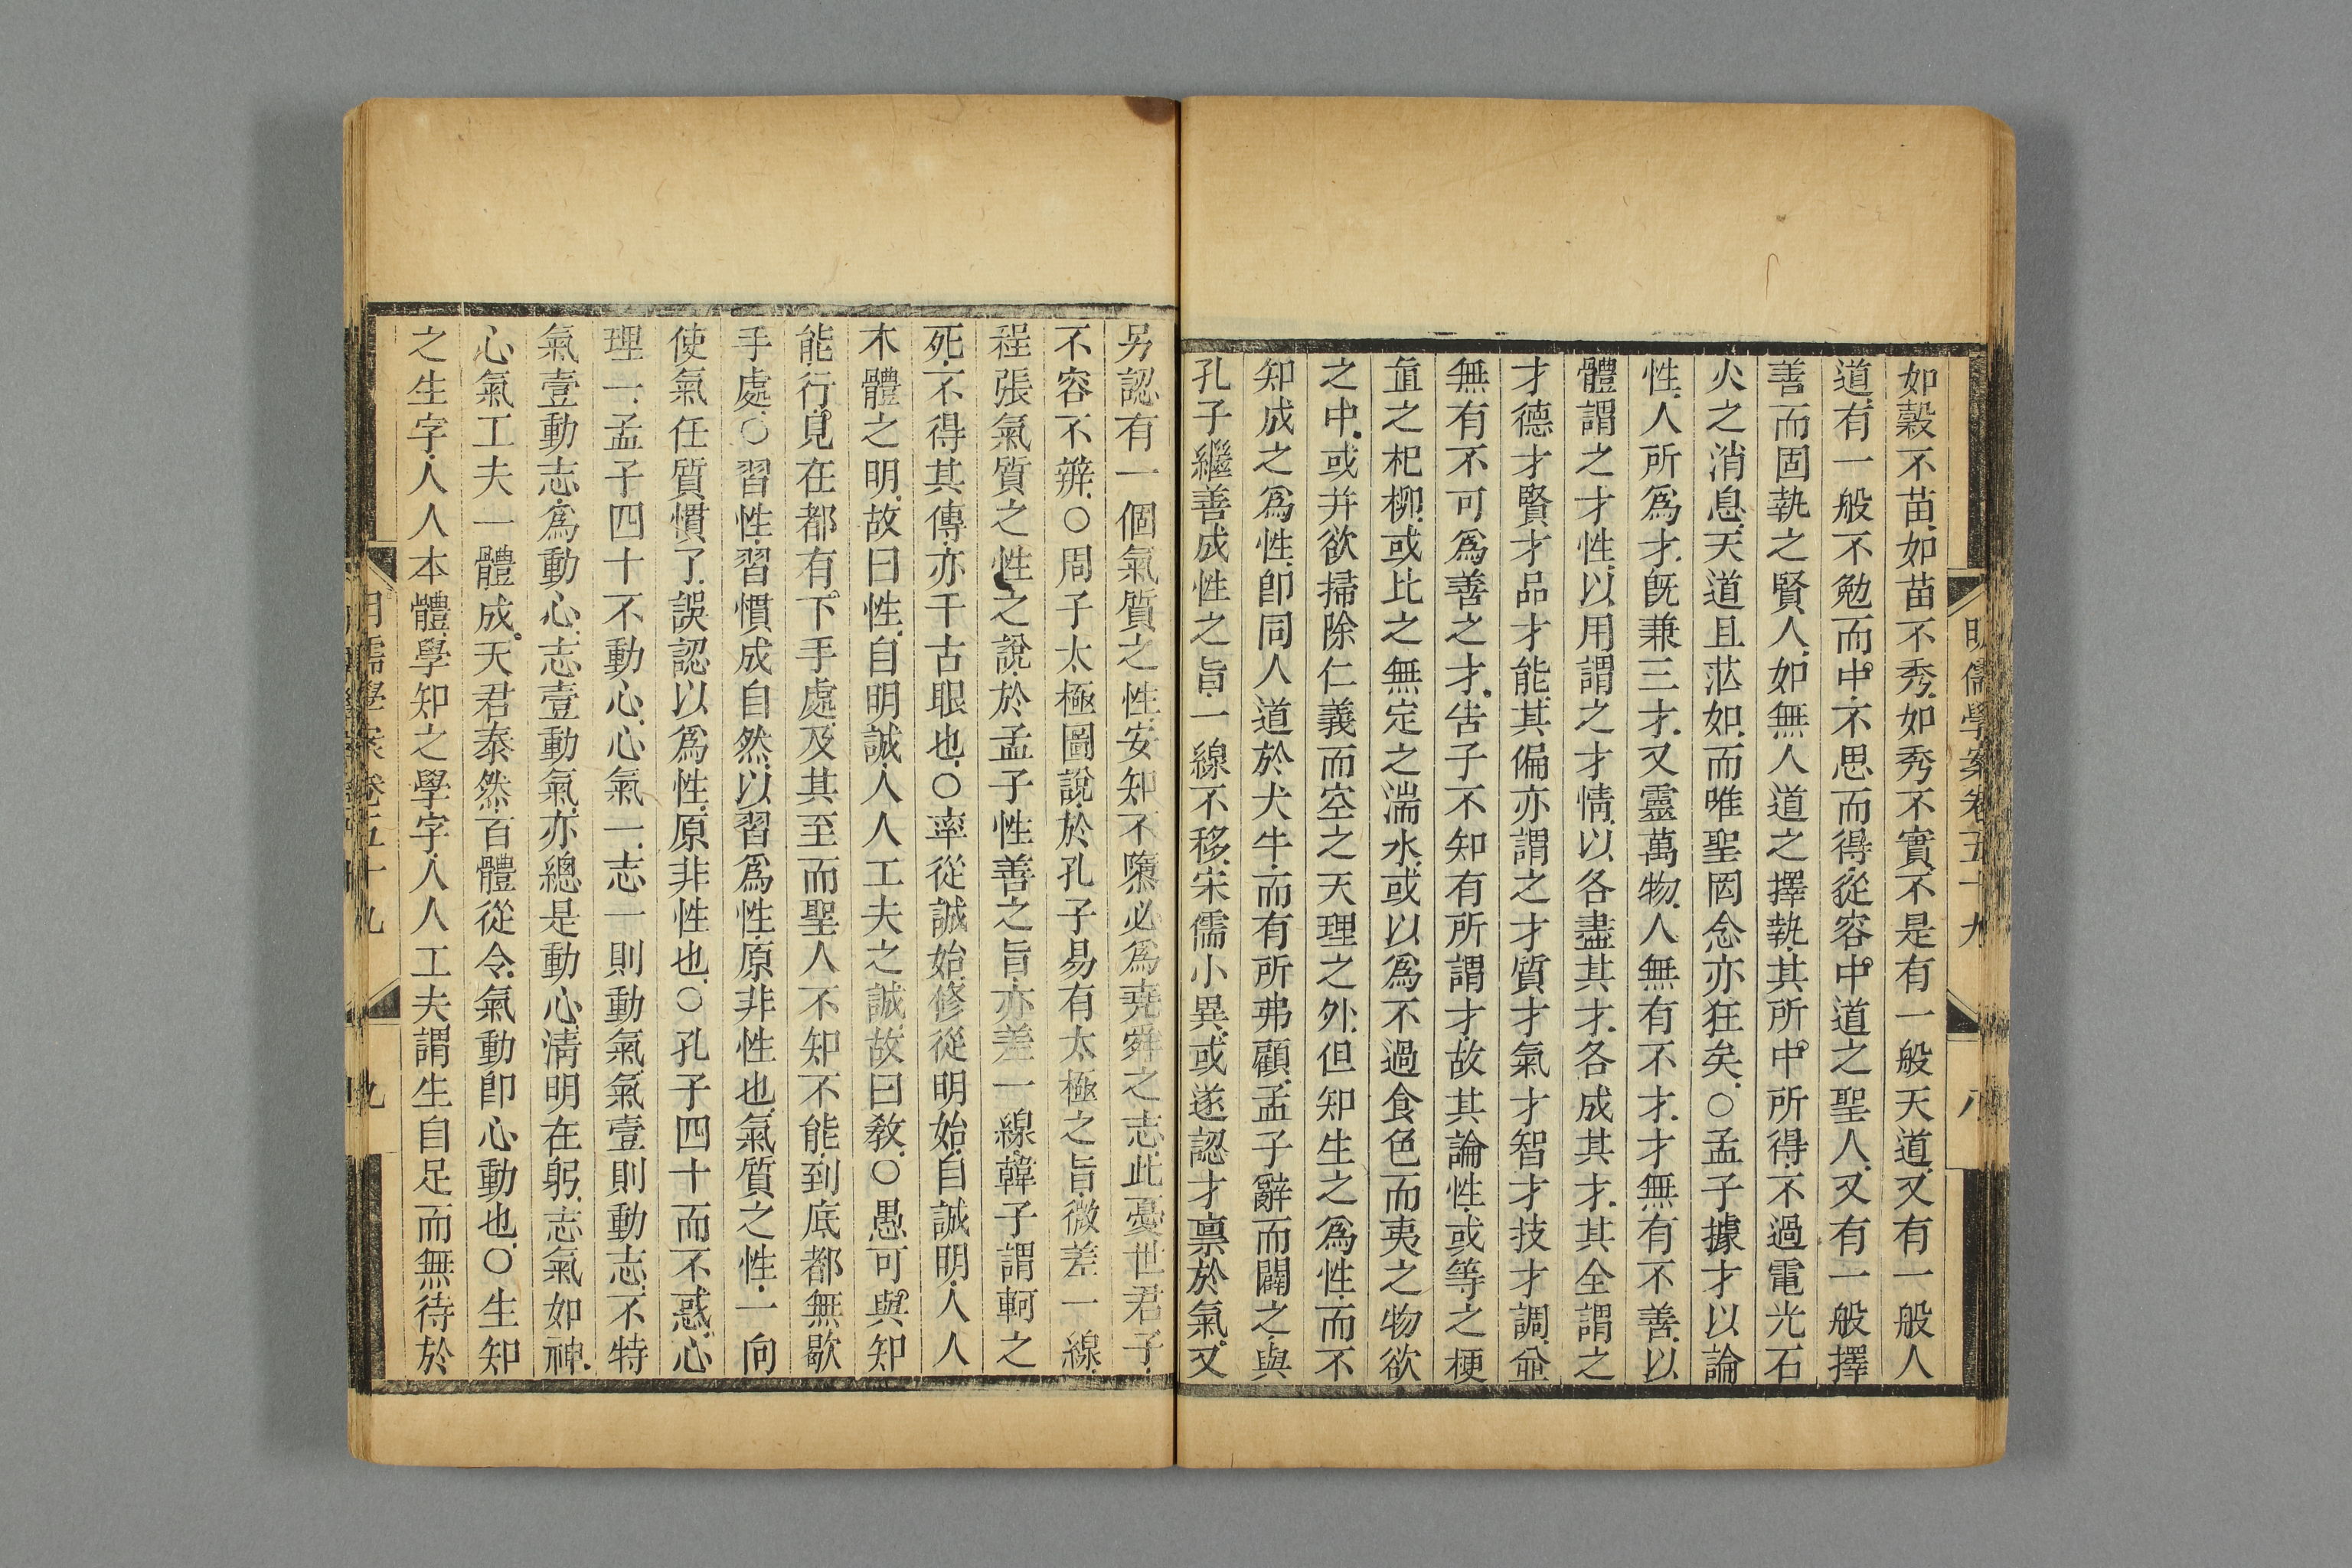 明儒學案卷五十九　八
如穀不苗如苗不秀如秀不實不是有一般天道又有一般人
道有一般不勉而中不思而得從容中道之聖人又有一般擇
善而固執之賢人如無人道之擇執其所中所得不過電光石
火之消息天道且茫如而唯聖罔念亦狂矣○孟子據才以論
性人所爲才旣兼三才又靈萬物人無有不才才無有不善以
體謂之才性以用謂之才情以各盡其才各成其才其全謂之
才德才賢才品才能其偏亦謂之才質才氣才智才技才調並
無有不可爲善之才告子不知有所謂才故其論性或等之梗
直之杞柳或比之無定之湍水或以爲不過食色而夷之物欲
之中或并欲掃除仁義而空之天理之外但知生之爲性而不
知成之爲性卽同人道於犬牛而有所弗顧孟子辭而闢之與
孔子繼善成性之旨一線不移宋儒小異或遂認才禀於氣又
另認有一個氣質之性安知不隳必爲堯舜之志此憂世君子
不容不辨○周子太極圖說於孔子易有太極之旨微差一線
程張氣質之性之說於孟子性善之旨亦差一線韓子謂軻之
死不得其傳亦千古眼也○率從誠始修從明始自誠明人人
本體之明故曰性自明誠人人工夫之誠故曰敎○愚可與知
能行見在都有下手處及其至而聖人不知不能到底都無歇
手處○習性習慣成自然以習爲性原非性也氣質之性一向
使氣任質慣了誤認以爲性原非性也○孔子四十而不惑心
理一孟子四十不動心心氣一志一則動氣氣壹則動志不特
氣壹動志爲動心志壹動氣亦總是動心淸明在躬志氣如神
心氣工夫一體成天君泰然百體從令氣動卽心動也○生知
之生字人人本體學知之學字人人工夫謂生自足而無待於
明儒學案卷五十九　九